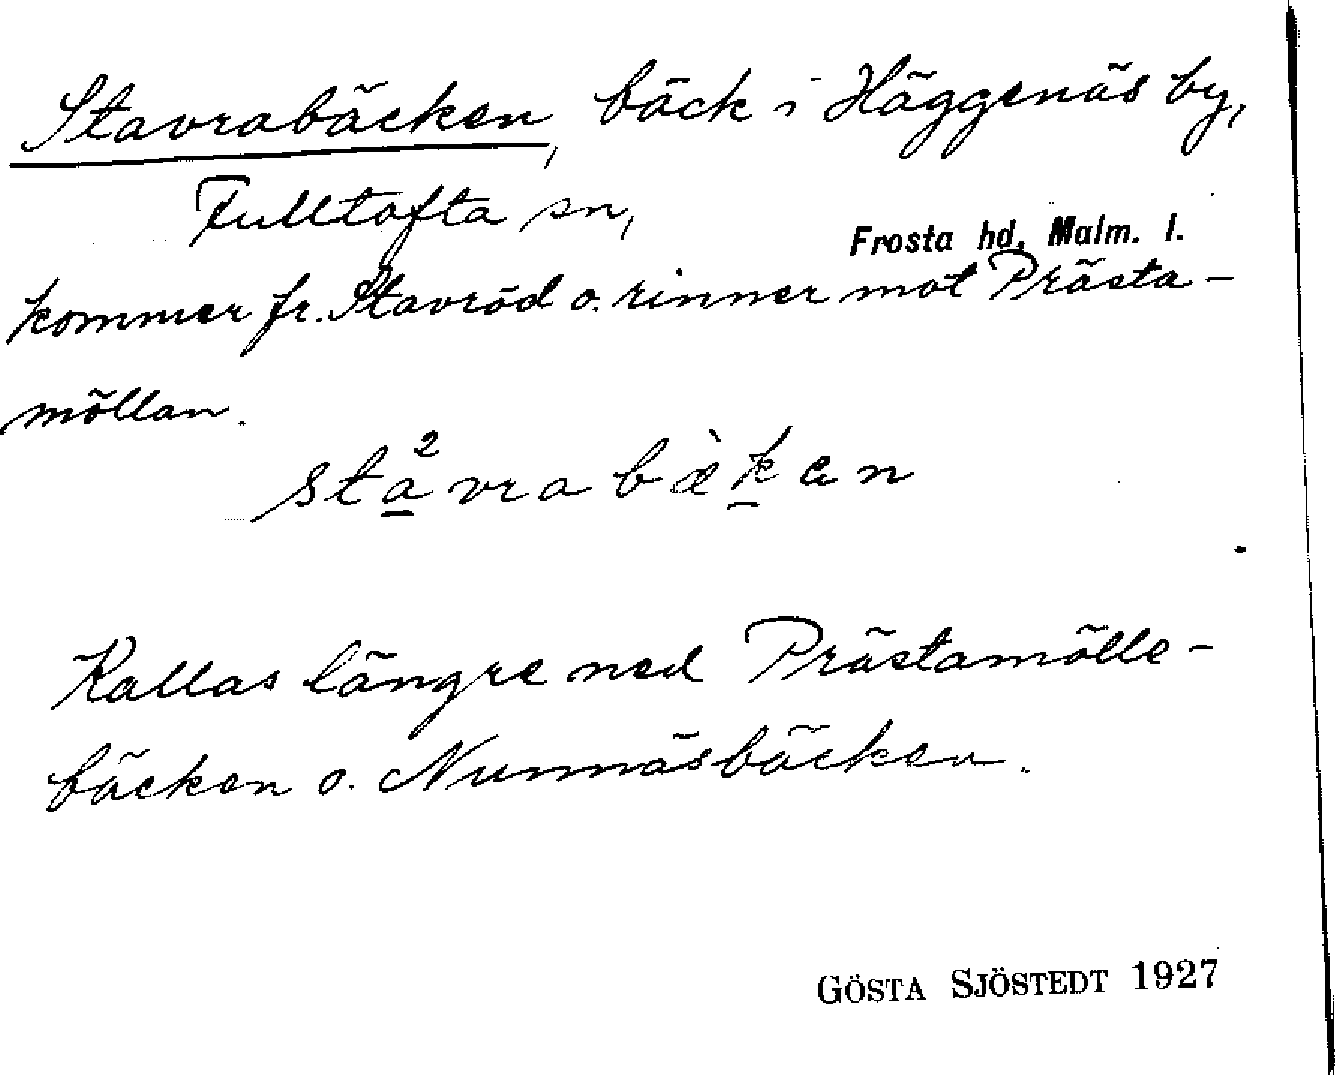 Stavrabäcken, bäck i Häggenäs by,
Fulltofta sn,
Frosta hd, Malm. l.
kommer fr. Stavröd o. rinner mot Prästa-
möllan.
sta²vrabæ̀ken
Kallas längre ned Prästamölle-
bäcken o. Nunnäsbäcken.
GÖSTA SJÖSTEDT 1927